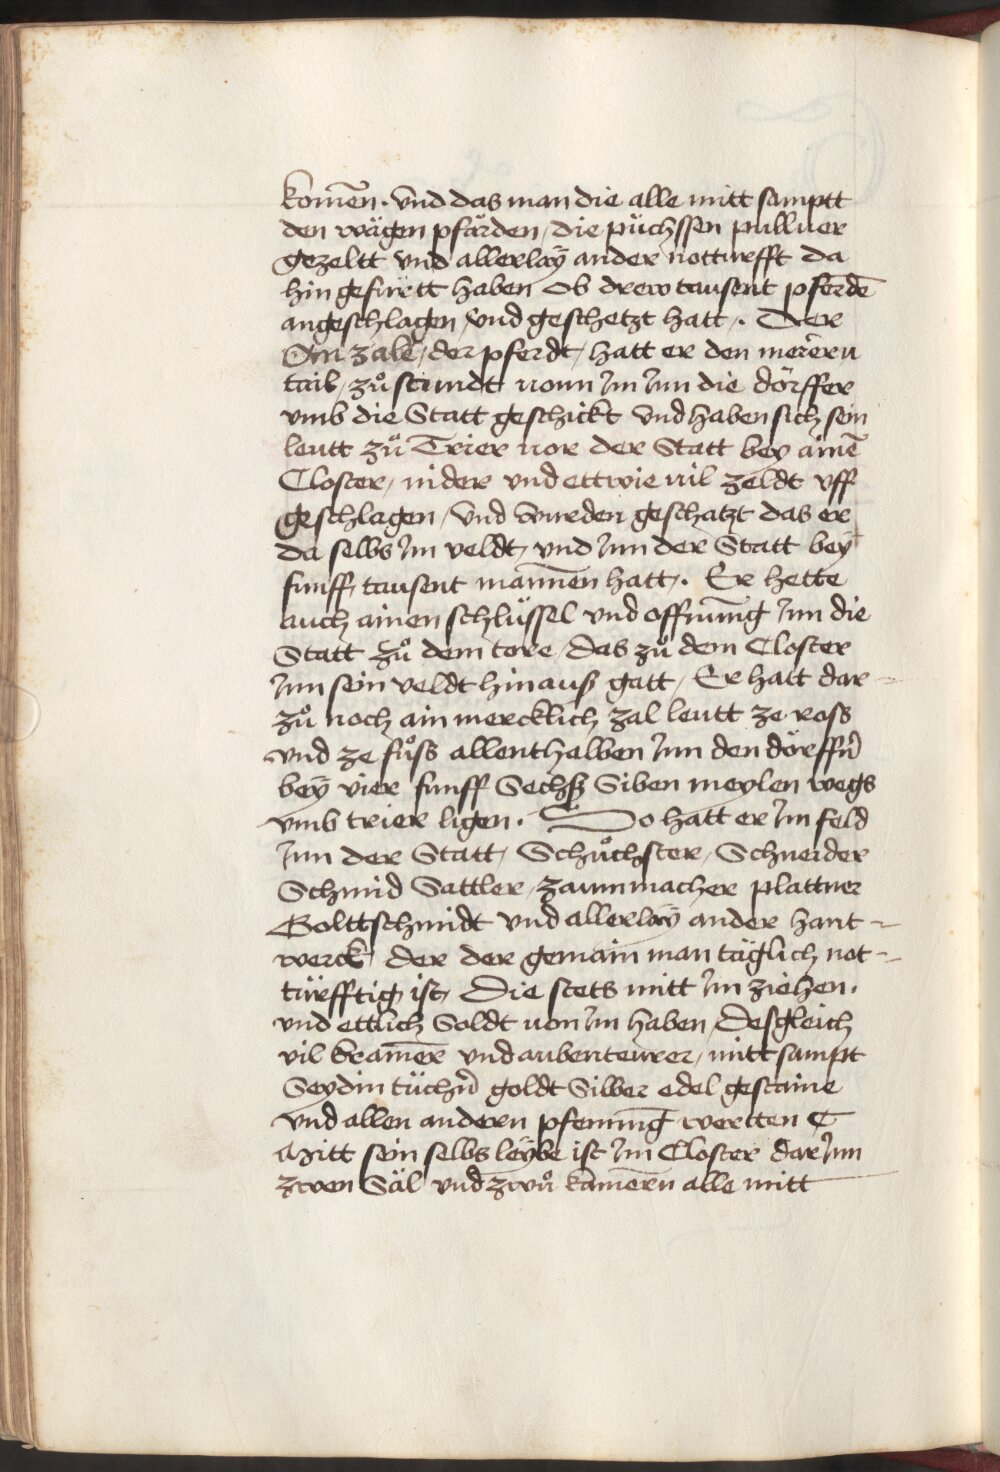 komēn · vnd das man die alle mitt samptt
den wägen pfärden / die püchssen pulluer
gezeltt vnd allerlaÿ ander notturfft da
hin gefürtt haben Ob drew tausent pferdē
angeschlagen / vnd geschetzt hatt / . Der
An zale / der pferdt / hatt er den merern
tail / zů stundt vonn Im Inn die dörffer
vmb die Statt geschickt vnd haben sich sein
leutt zů Trier vor der Statt bey ainē
Closter / nider vnd ettwie vil zeldt vff
geschlagen / vnd wurden geschatzt das er
da selbs Im veldt / vnd Inn der Statt beÿ
funff tausent mannēn hatt / . Er hette
auch ainen schlüssel vnd offnūng Inn die
Statt zů dem tore / das zů dem Closter
Inn sein veldt hinauß gatt / Er hatt dar-
zů noch ain mercklich zal leutt ze ross
vnd ze fůss allenthalben Inn den dörffn̄
beÿ vier funff Sechß Siben meylen wegs
vmb trier ligen · So hatt er Im feld
Inn der Statt / Schůchster / Schneider
Schmid Sattler / zaummacher plattner
Golttschmidt vnd allerlaÿ ander hant-
werck der der gemain man täglich not-
türfftig ist / Die stets mitt Im ziehen ·
vnd ettlich Soldt von Im haben / Desgleich
vil kramēr vnd aubenteurer / mitt sampt
Seydin tüchn̄ goldt Silber edel gestaine
vnd allen andern pfenning wertten
Mitt sein selbs leÿbe ist Im Closter dar Inn
zwen Säl vnd zwů kamērn alle mitt